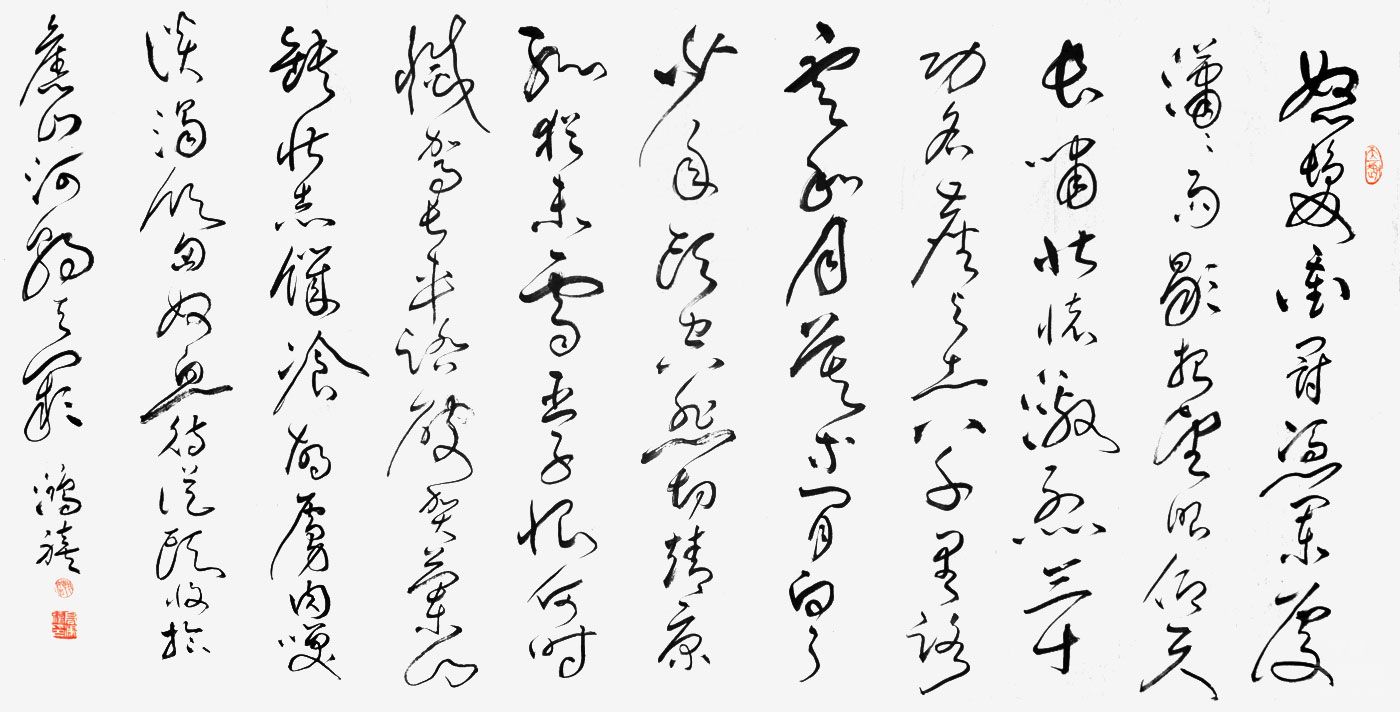 怒髮衝冠憑闌處
瀟々雨歇抬望眼仰天
長嘯壯懷激烈三十
功名塵與土八千里路
雲和月莫等閒白了
少年頭空悲切靖康
恥猶未雪臣子恨何時
滅駕長車踏破賀蘭山
缺壯志饑餐胡虜肉笑
談渴飲匈奴血待從頭收拾
舊山河朝天闕 鴻禧